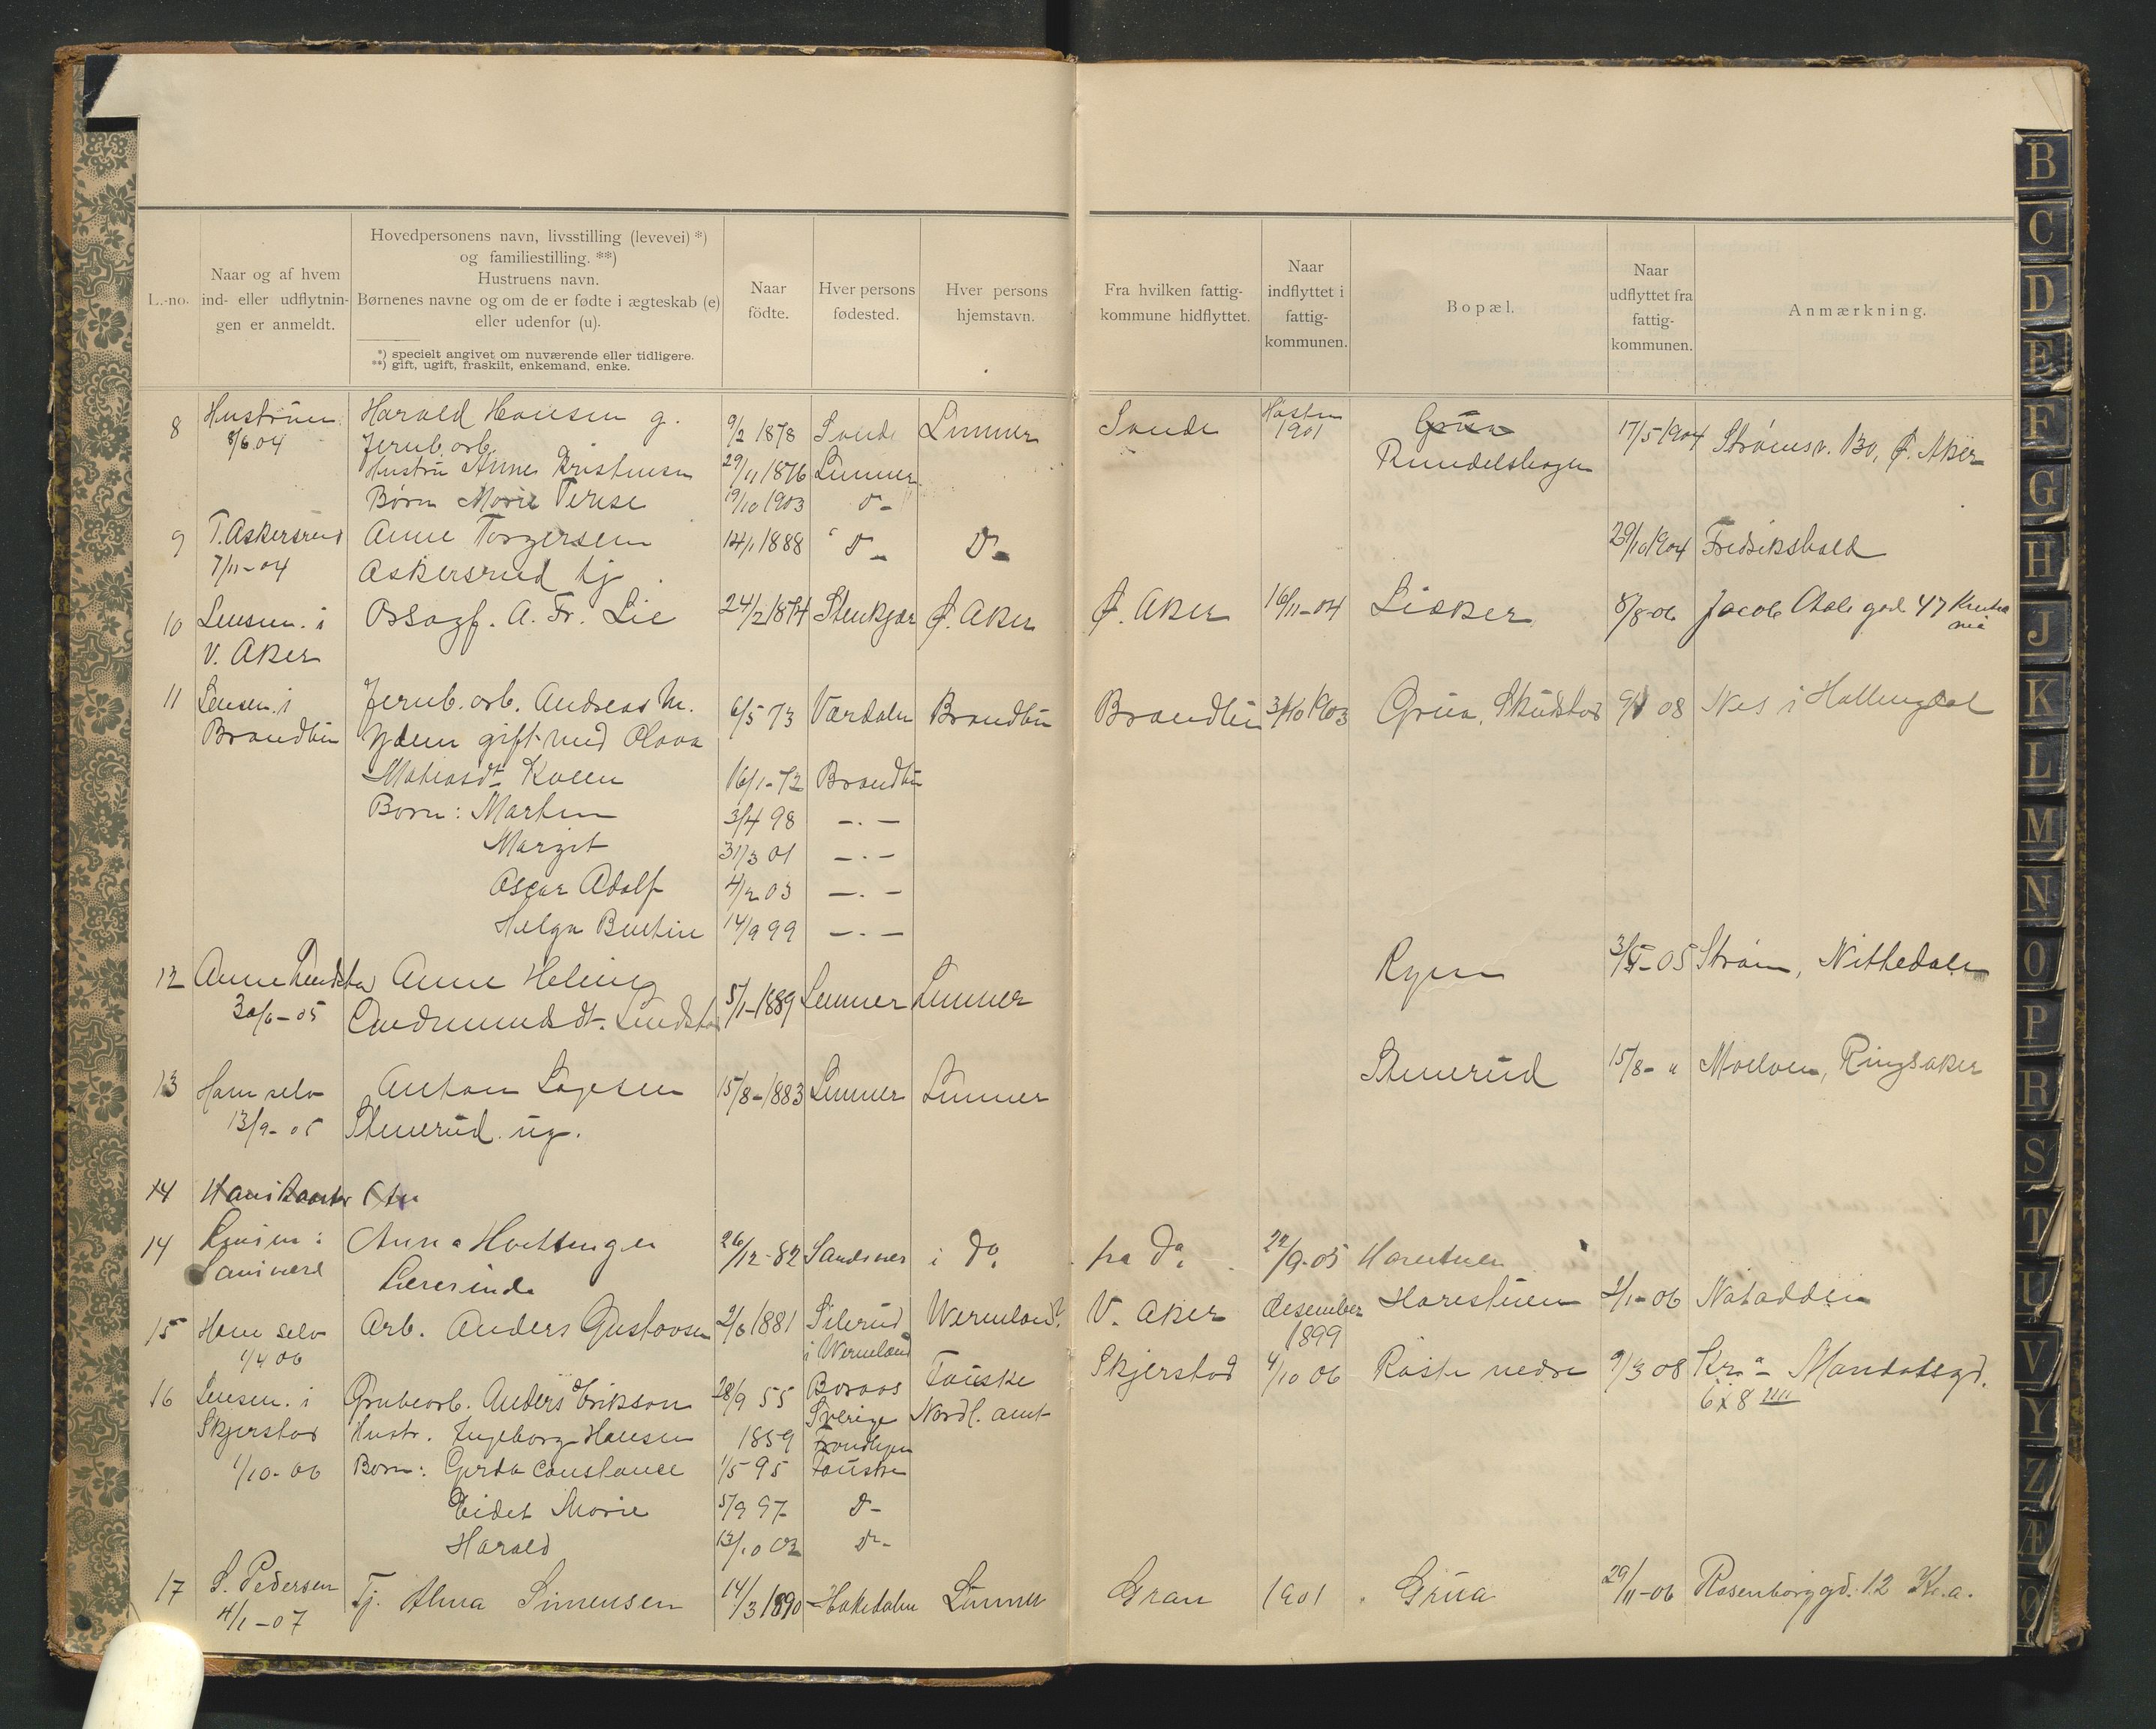 L.-no.
Naar og af hvem
ind- eller udflytnin-
gen er anmeldt.
Hovedpersonens navn, livsstilling (levevei) *)
og familiestilling. **)
Hustruens navn.
Børnenes navne og om de er fødte i ægteskab (e)
eller udenfor (u).
*) specielt angivet om nuværende eller tidligere.
**) gift, ugift, fraskilt, enkemand, enke.
Naar
födte.
Hver persons
fødested.
Hver persons
hjemstavn.
Fra hvilken fattig-
kommune hidflyttet.
Naar
indflyttet i
fattig-
kommunen.
Bopæl.
Naar
udflyttet fra
fattig-
kommunen.
Anmærkning.
8 Hustruen Harald Hansen g. 9/2 1878 Sande Lunner Sande Høsten 1901 Grua 17/5 1904 Strømsv. 130, Ø. Aker
8/6 04 Jernb. arb. Rundelshagen
Hustru Anne Kristensen 29/11 1876 Lunner
Børn Marie Terese 19/10 1903 D-
9 T. Askersrud Anne Torgersen 14/1 1888 D- D- 29/10 1904 Fredrikshald
7/11-04 Askersrud tj.
10 Lensm. i Opsagf. A. Fr. Lie 24/2 1874 Stenkjær Ø. Aker Ø. Aker 16/11-04 Lieker 8/8-06 Jacob Aals gad 47 Kristia
V. Aker nia
11 Lensm. i Jernb. arb. Andreas M. 6/5 73 Værdalen Brandbu Brandbu 3/10 1903 Grua, Skudstad 08 Nes i Hallingdal
Brandbu Ydem gift med Olava
Matiasdt. Kolen 16/1-72 Brandbu
Børn: Martin 3/4 98 -.-
Margit 31/3 01 -.-
Oscar Adolf 4/2 03 -.-
Helga 14/9 99 -.-
12 Anne Lindstad Anne Heling 5/1-1889 Lunner Lunner 05 Strøm, Nittedalen
30/6-05 Gudmundsdt. Lindstad
13 Ham selv Anton Larsen 15/8-1883 Lunner Lunner Stenerud 15/8- " Moelven, Ringsaker
13/9-05 Stenerud. ug.
14
14 Lensm. i Anna 26/12-82 Sandsvær i do. fra do. 22/9-05 Harestuen
Sandsværd Lærerinde
15 Ham selv Arb. Anders Gustavsen 2/6 1881 Silerud Wermland V. Aker desember Harestuen 2/1-06 Notodden
1/4 06 i Wermland 1899
16 Lensm. i Grubearb. Anders Erikson 28/9 55 Boraas Fauske Skjerstad 4/10 06 Raste nedre 9/3 08 Kra - Mandalsgd.
Sverige Nordl. amt 6 x 8
Skjerstad Hustr. Ingeborg Hansen 1859 Trondhjem
1/10-06 Børn: Gerda Constance 1/5 95 Fauske
Eidet Marie 5/9 97 D-
Harald 13/10 02 D-
17 S. Pedersen Tj. Alma Simensen 14/3 1890 Hakedalen Lunner Gran 1901 Grua 29/11-06 Rosenborggd. 12 Kr.a.
4/1-07
B
C
D
E
F
G
H
J
K
L
M
N
O
P
R
S
T
U
V
Y
Z
Æ
Ø